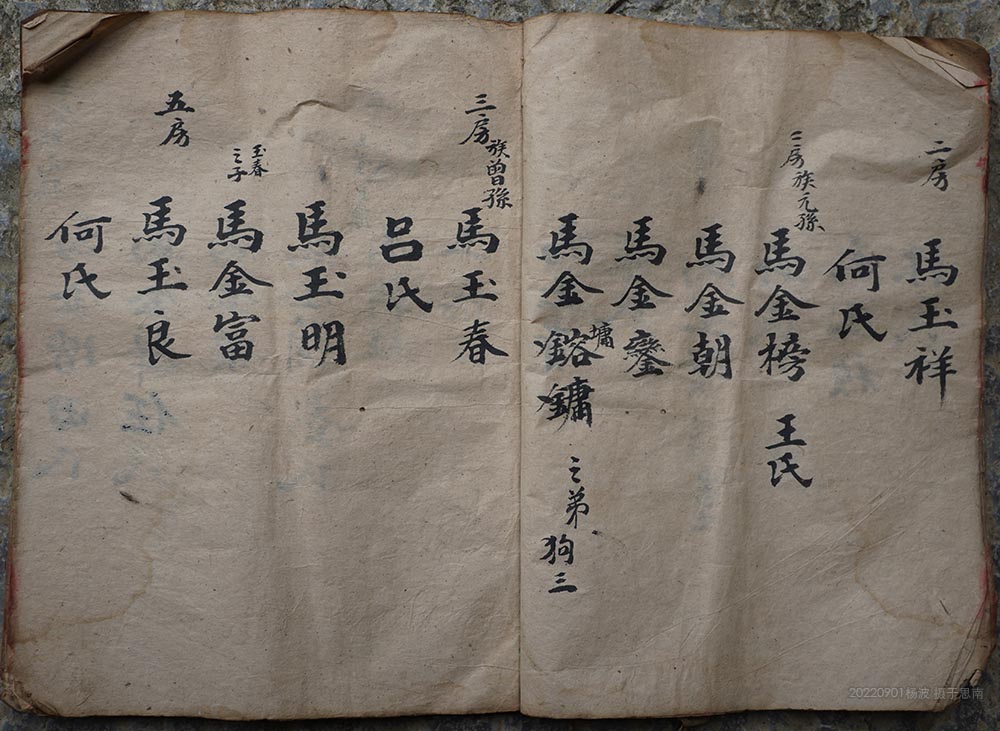 二房
馬玉祥
何氏
二房族元孫
馬金榜 王氏
馬金朝
馬金鑾
馬金鎔鏞 之弟狗三
墉
三房
族曾孫
馬玉春
呂氏
馬玉明
玉春
之子
馬金富
五房
馬玉良
何氏
20220901杨波 摄于思南